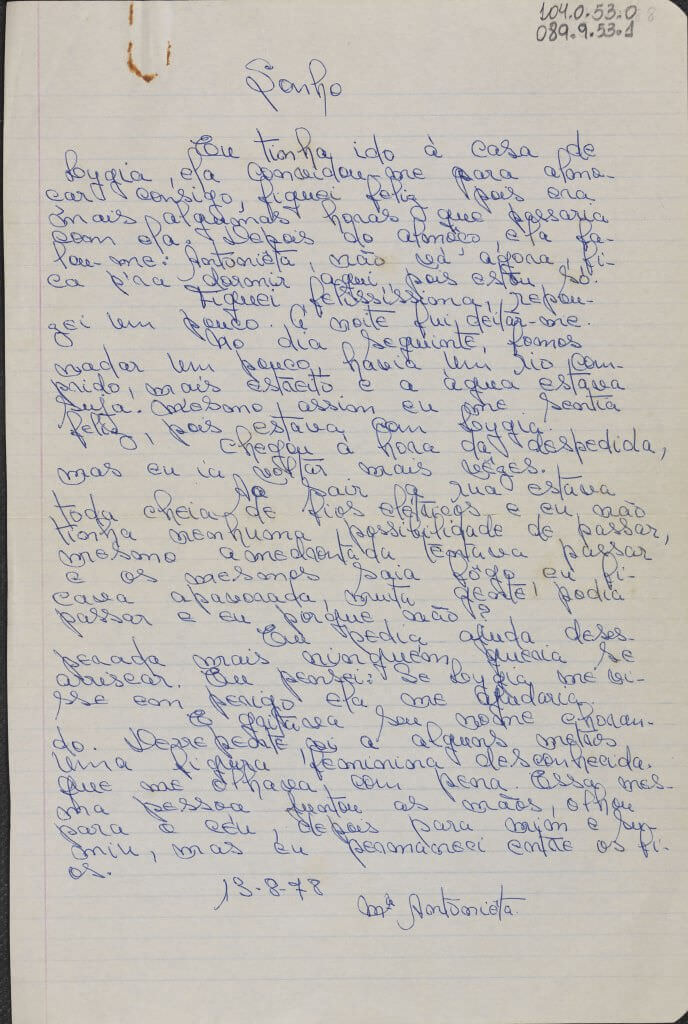 104.0.53.0
089.9.53.1
Sonho
Eu tinha ido à casa de
Lygia, ela convidou-me para almo-
çar consigo, fiquei feliz pois era
mais algumas horas que passaria
com ela. Depois do almoço, ela fa-
lou-me: Antonieta, não vá agora, fi-
ca p'ra dormir aqui, pois estou só.
Fiquei felissíssima, repou-
zei um pouco. À noite fui deitar-me.
No dia seguinte, fomos
nadar um pouco, havia um rio com-
prido, mais estreito e a água estava
suja. Mesmo assim eu me sentia
feliz, pois estava com Lygia.
Chegou à hora da despedida,
mas eu ia voltar mais vezes.
Ao sair a rua estava
toda cheia de fios elétricos e eu não
tinha nenhuma possibilidade de passar,
mesmo amedrontada tentava passar
e os mesmos saia fôgo eu fi-
cava apavorada, muita gente podia
passar e eu porque não?
Eu pedia ajuda deses-
perada mais ninguém queria se
arriscar. Eu pensei: Se Lygia me vi-
sse em perigo ela me ajudaria.
E gritava seu nome choran-
do. Derrepente vi a alguns metros
uma figura feminina desconhecida.
que me olhava com pena. Essa mes-
ma pessoa juntou as mãos, olhou
para o céu, depois para mim e su-
miu, mas eu permaneci entre os fi-
os.
13-8-78
Mª Antonieta.